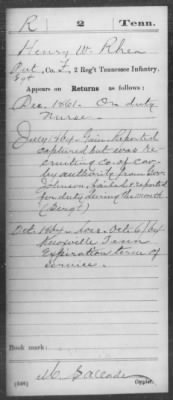 R 2 Tenn.
Henry W. Rhea
Sgt, Co. F, 2 Reg't Tennessee Infantry.
Appears on Returns as follows:
Dec. 1861. On duty
Nurse.
July/64 Gain. Reported
captured but was re-
cruiting co. of cav.
by authority from Gov.
Johnson, failed to report
for duty during the month
(Sergt)
Oct. 1864 Loss. Oct. 6/64
Knoxville Tenn
Expiration term of
service.
Book mark:
(546) Copyist.